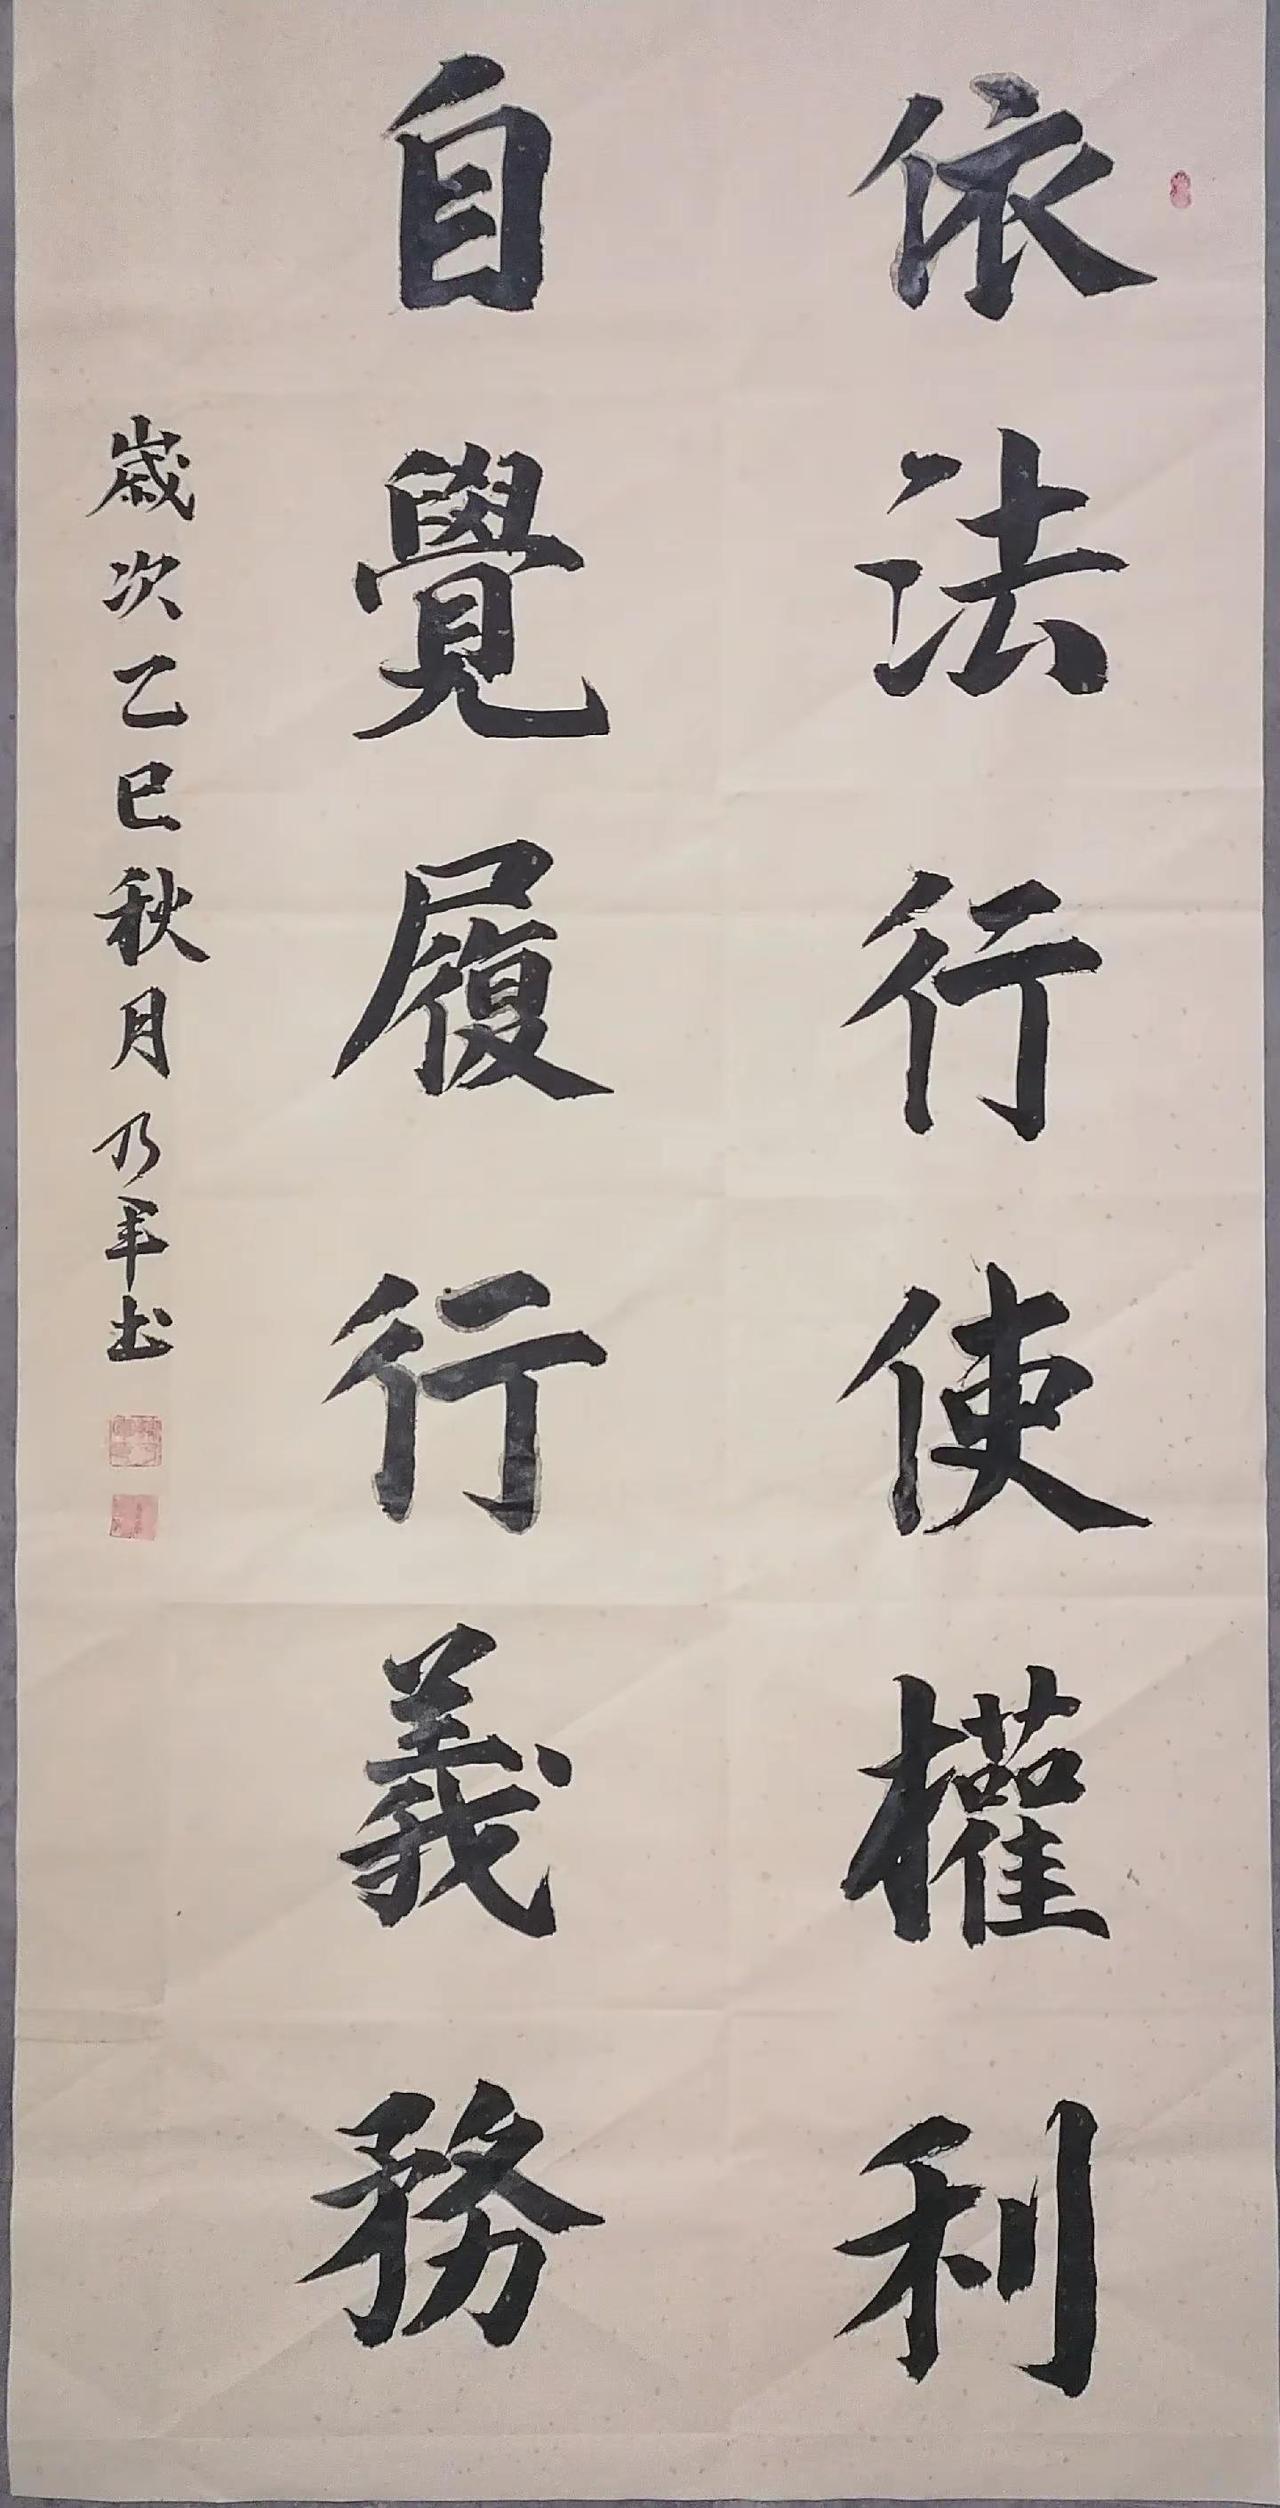 依法行使權利
自覺履行義務
歲次乙巳秋月乃軍书